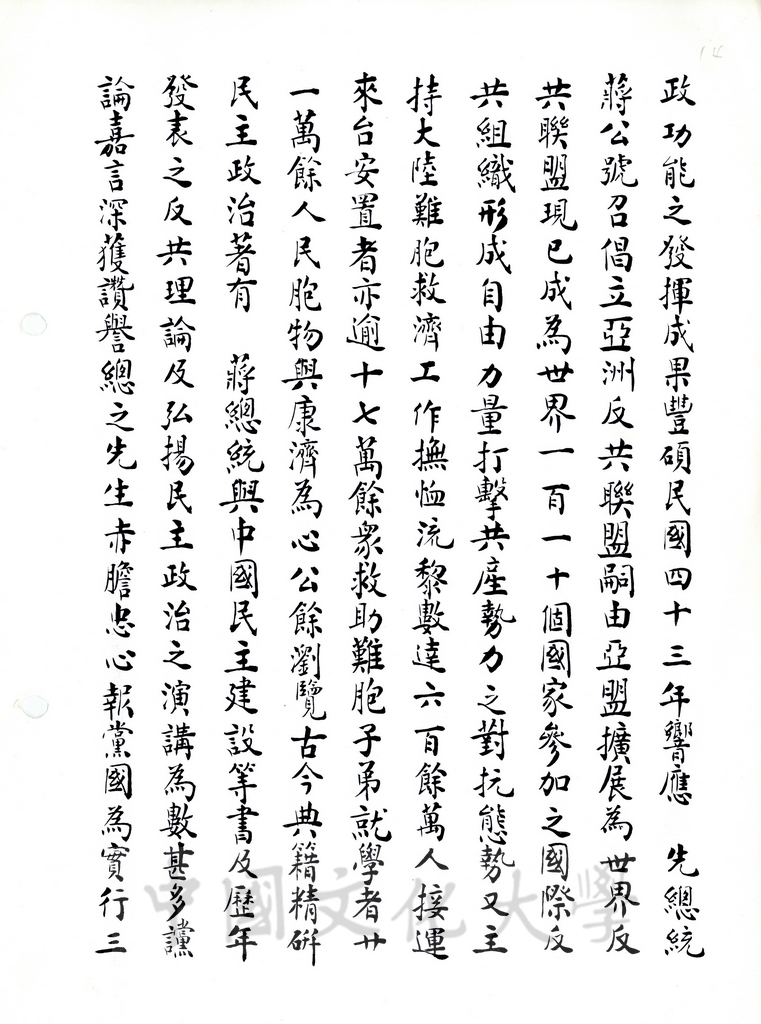 14
政功能之發揮成果豐碩民國四十三年響應　先總統
蔣公號召倡立亞洲反共聯盟嗣由亞盟擴展為世界反
共聯盟現已成為世界一百一十個國家參加之國際反
共組織形成自由力量打擊共產勢力之對抗態勢又主
持大陸難胞救濟工作撫恤流黎數達六百餘萬人接運
來台安置者亦逾十七萬餘眾救助難胞子弟就學者廿
一萬餘人民胞物與康濟為心公餘瀏覽古今典籍精研
民主政治著有　蔣總統與中國民主建設等書及歷年
發表之反共理論及弘揚民主政治之演講為數甚多讜
論嘉言深獲讚譽總之先生赤膽忠心報黨國為實行三
中國文化大學